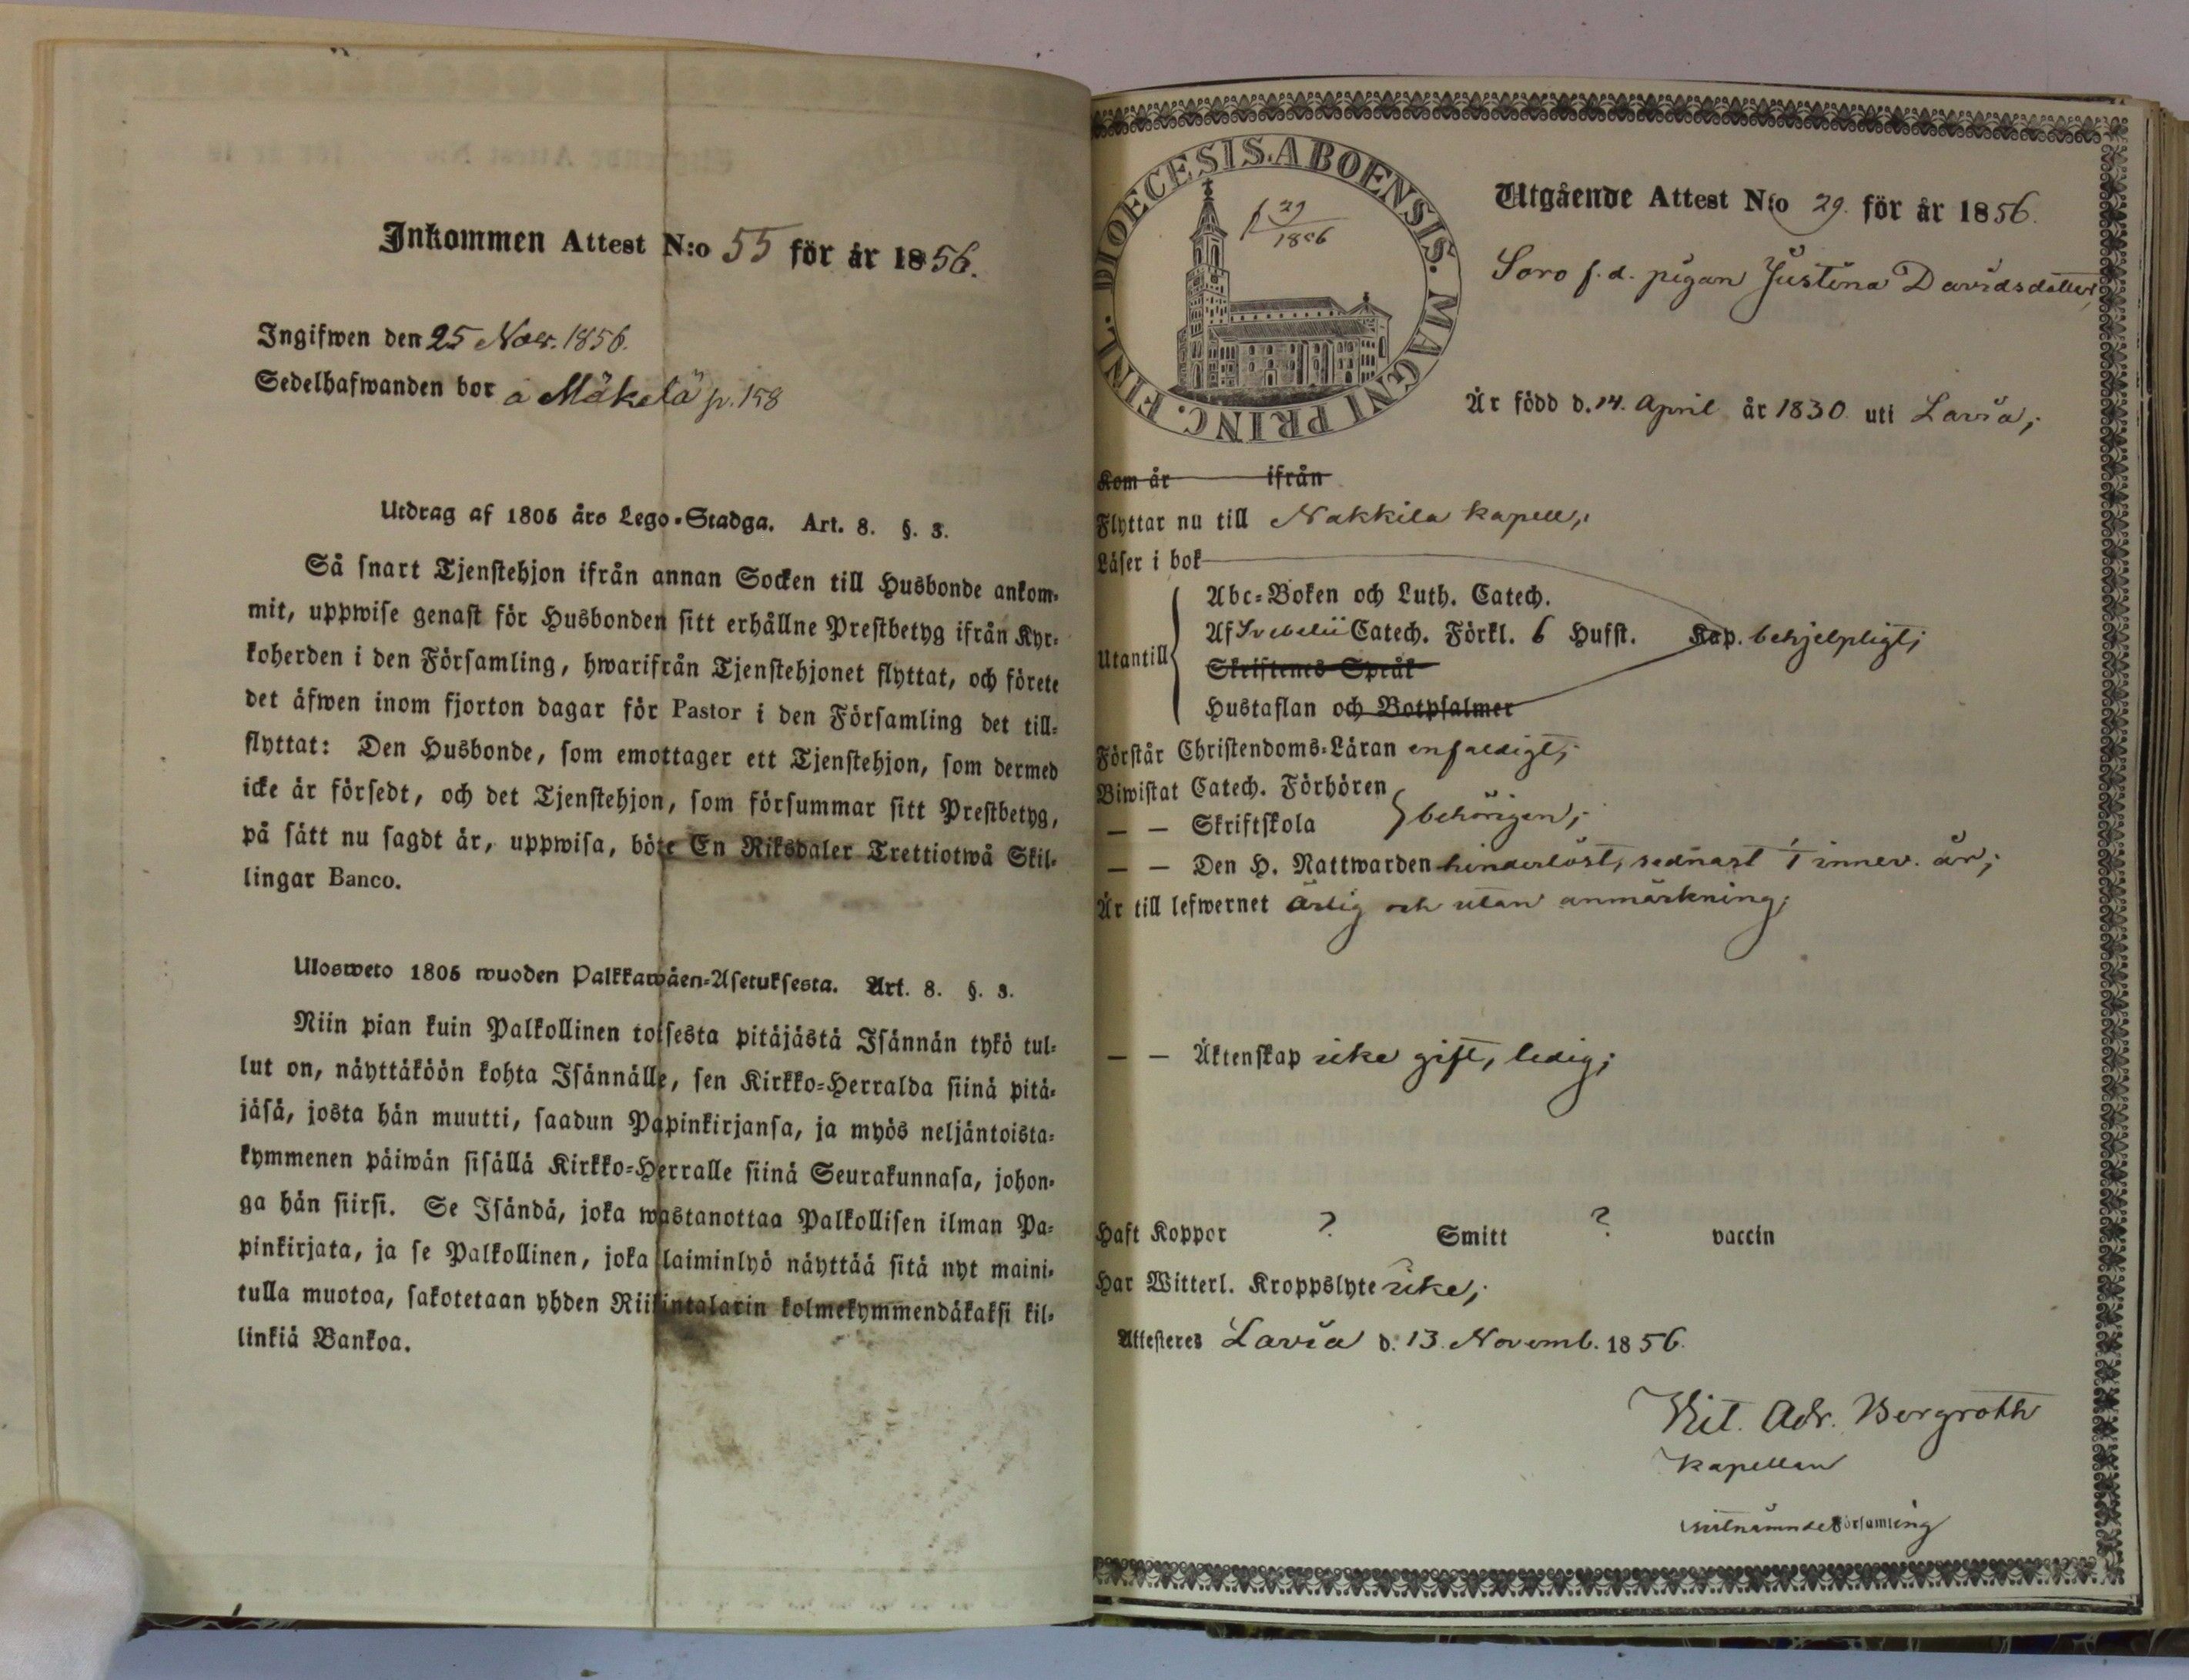 Inkommen Attest N:o 55 för år 1856.
Ingifwen den 25 Nov. 1856.
Sedelhafwanden bor å Mäkelä p. 158
Utdrag af 1805 års Lego-Stadga. Art. 8. §. 3.
Så snart Tjenstehjon ifrån annan Socken till Husbonde ankom-
mit, uppwise genast för Husbonden sitt erhållne Prestbetyg ifrån Kyr-
koherden i den Församling, hwarifrån Tjenstehjonet flyttat, och förete
det äfwen inom fjorton dagar för Pastor i den Församling det till-
flyttat: Den Husbonde, som emottager ett Tjenstehjon, som dermed
icke är försedt, och det Tjenstehjon, som försummar sitt Prestbetyg,
på sätt nu sagdt är, uppwisa, böte En Riksdaler Trettiotwå Skil-
lingar Banco.
Ulosweto 1805 wuoden Palkkawäen-Asetuksesta. Art. 8. §. 3.
Niin pian kuin Palkollinen toisesta pitäjästä Isännän tykö tul-
lut on, näyttäköön kohta Isännälle, sen Kirkko-Herralda siinä pitä-
jäsä, josta hän muutti, saadun Papinkirjansa, ja myös neljäntoista-
kymmenen päiwän sisällä Kirkko-Herralle siinä Seurakunnasa, johon-
ga hän siirsi. Se Isändä, joka wastanottaa Palkollisen ilman Pa-
pinkirjata, ja se Palkollinen, joka laiminlyö näyttää sitä nyt maini-
tulla muotoa, sakotetaan yhden Riikintalarin kolmekymmendäkaksi kil-
linkiä Bankoa.
DIOECESIS. ABOENSIS. MAGNI PRINC. FINL.
29
1856
Utgående Attest N:o 29. för år 1856.
Soro f. d. pigan Justina Davidsdotter,
Är född d. 14. April år 1830 uti Lavia;
Kom år ifrån
Flyttar nu till Nakkila kapell;
Läser i bok
Utantill
Abc-Boken och Luth. Catech.
Af Svebelii Catech. Förkl. 6 Hufst. Kap. behjelpligt;
Skriftenes Språk
Hustaflan och Botpsalmer
Förstår Christendoms-Läran enfaldigt;
Biwistat Catech. Förhören
— — Skriftskola behörigen;
— — Den H. Nattwarden hinderlöst, sednast i innev. år;
Är till lefwernet ärlig och utan anmärkning;
— — Äktenskap icke gift, ledig;
Haft Koppor ? Smitt ? vaccin
Har Witterl. Kroppslyte icke;
Attesteres Lavia d. 13. Novemb. 1856.
Vit. Adr. Bergroth
Kapellan
vid nämnde Församling